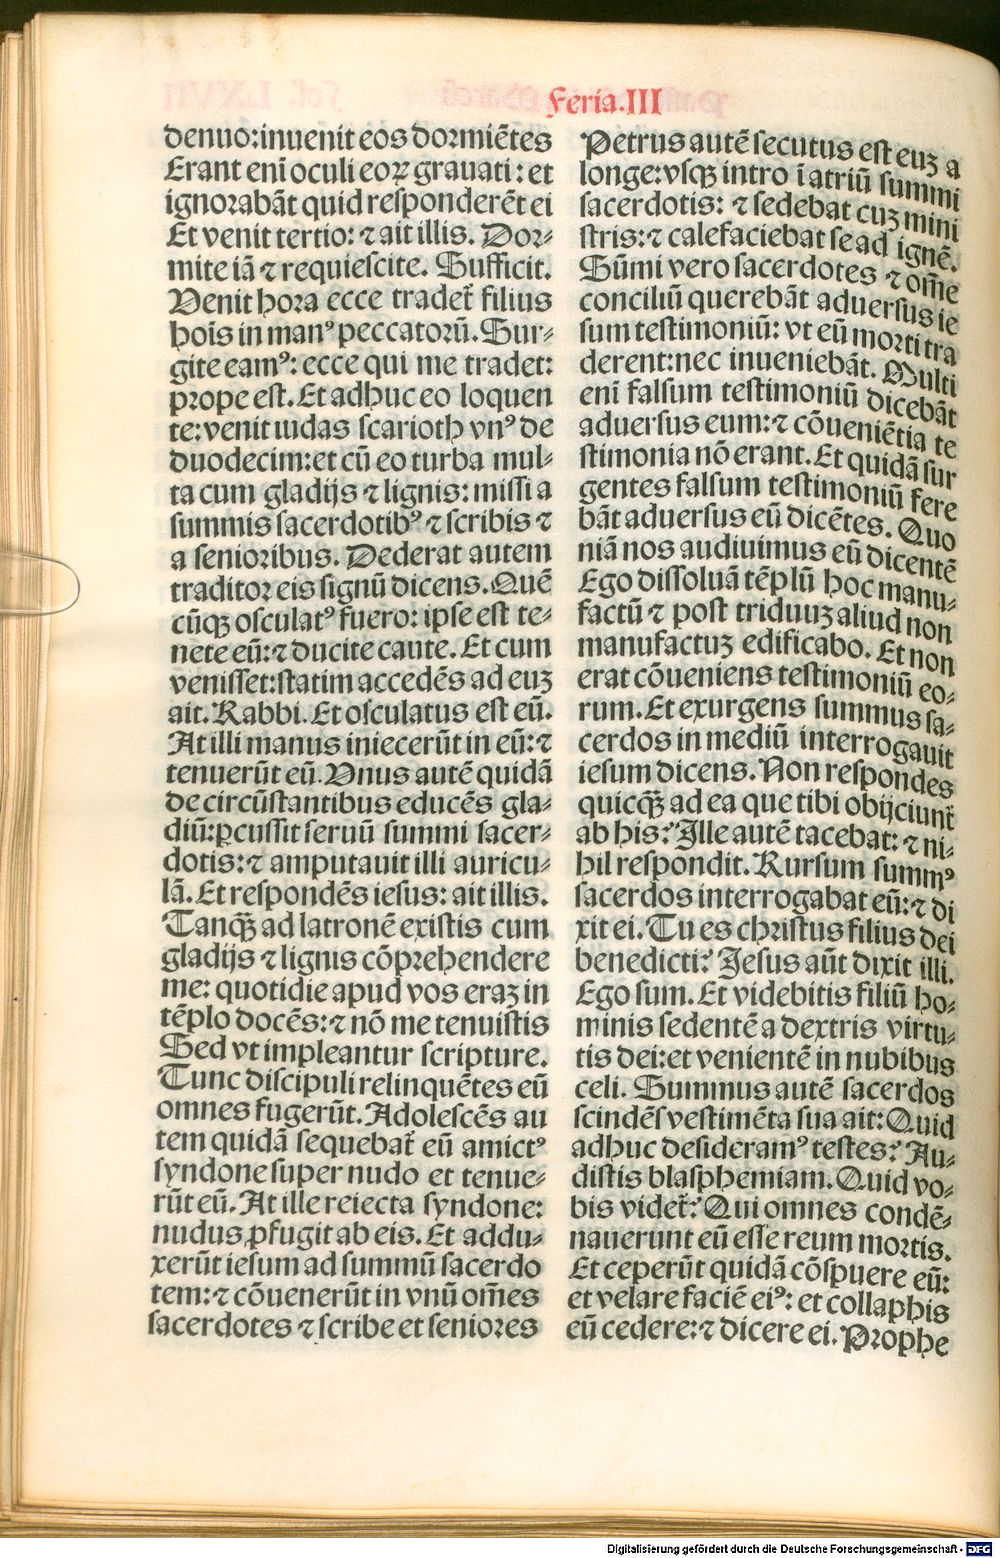 Feria.III
denuo:inuenit eos dormiētes
Erant enī oculi eoꝝ grauati: et
ignorabāt quid responderēt ei
Et venit tertio: ⁊ ait illis. Dor⸗
mite iā ⁊ requiescite. Sufficit.
Venit hora ecce tradet᷑ filius
hoīs in manꝰ peccatorū. Sur⸗
gite eamꝰ: ecce qui me tradet:
prope est. Et adhuc eo loquen
te: venit iudas scarioth vnꝰ de
duodecim: et cū eo turba mul⸗
ta cum gladijs ⁊ lignis: missi a
summis sacerdotibꝰ ⁊ scribis ⁊
a senioribus. Dederat autem
traditor eis signū dicens. Quē
cūqꝫ osculatꝰ fuero: ipse est te⸗
nete eū: ⁊ ducite caute. Et cum
venisset: statim accedēs ad euꝫ
ait. Rabbi. Et osculatus est eū.
At illi manus iniecerūt in eū: ⁊
tenuerūt eū. Vnus autē quidā
de circūstantibus educēs gla⸗
diū: ꝑcussit seruū summi sacer⸗
dotis: ⁊ amputauit illi auricu⸗
lā. Et respondēs iesus: ait illis.
Tanqꝫ̄ ad latronē existis cum
gladijs ⁊ lignis cōprehendere
me: quotidie apud vos eraꝫ in
tēplo docēs: ⁊ nō me tenuistis
Sed vt impleantur scripture.
Tunc discipuli relinquētes eū
omnes fugerūt. Adolescēs au
tem quidā sequebat᷑ eū amictꝰ
syndone super nudo et tenue⸗
rūt eū. At ille reiecta syndone:
nudus ꝓfugit ab eis. Et addu⸗
xerūt iesum ad summū sacerdo
tem: ⁊ cōuenerūt in vnū om̄es
sacerdotes ⁊ scribe et seniores
Petrus autē secutus est euꝫ a
longe: vsqꝫ intro ī atriū summi
sacerdotis: ⁊ sedebat cuꝫ mini
stris: ⁊ calefaciebat se ad ignē.
Sūmi vero sacerdotes ⁊ om̄e
conciliū querebāt aduersus ie
sum testimoniū: vt eū morti tra
derent: nec inueniebāt. Multi
enī falsum testimoniū dicebāt
aduersus eum: ⁊ cōueniētia te
stimonia nō erant. Et quidā sur
gentes falsum testimoniū fere
bāt aduersus eū dicētes. Quo
niā nos audiuimus eū dicentē
Ego dissoluā tēplū hoc manu⸗
factū ⁊ post triduuꝫ aliud non
manufactuꝫ edificabo. Et non
erat cōueniens testimoniū eo⸗
rum. Et exurgens summus sa⸗
cerdos in mediū interrogauit
iesum dicens. Non respondes
quicqꝫ̄ ad ea que tibi obijciunt᷑
ab his? Ille autē tacebat: ⁊ ni⸗
hil respondit. Rursum summꝰ
sacerdos interrogabat eū: ⁊ di
xit ei. Tu es christus filius dei
benedicti? Jesus aūt dixit illi.
Ego sum. Et videbitis filiū ho⸗
minis sedentē a dextris virtu⸗
tis dei: et venientē in nubibus
celi. Summus autē sacerdos
scindēs vestimēta sua ait: Quid
adhuc desideramꝰ testes? Au⸗
distis blasphemiam. Quid vo⸗
bis videt᷑? Qui omnes condē⸗
nauerunt eū esse reum mortis.
Et ceperūt quidā cōspuere eū:
et velare faciē eiꝰ: et collaphis
eū cedere: ⁊ dicere ei. Prophe
Digitalisierung gefördert durch die Deutsche Forschungsgemeinschaft - DFG